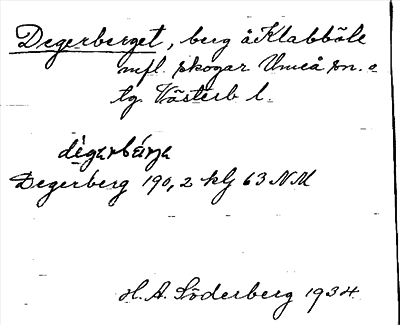 Degerberget, berg å Klabböle
mfl. skogar Umeå sn. o
tg. Västerb l.
dè̀garbárja
Degerberg 190,2 klj 63 NM
H. A. Söderberg 1934